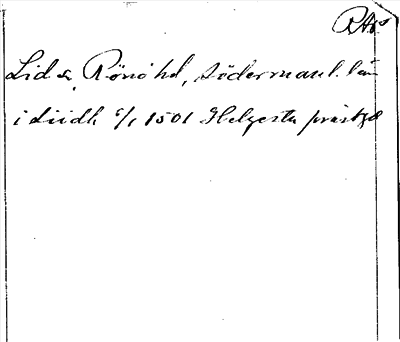 RAp
Lid sn, Rönö hd, Södermanl. län
i Liidh 6/1 1501 Helgesta prästgd